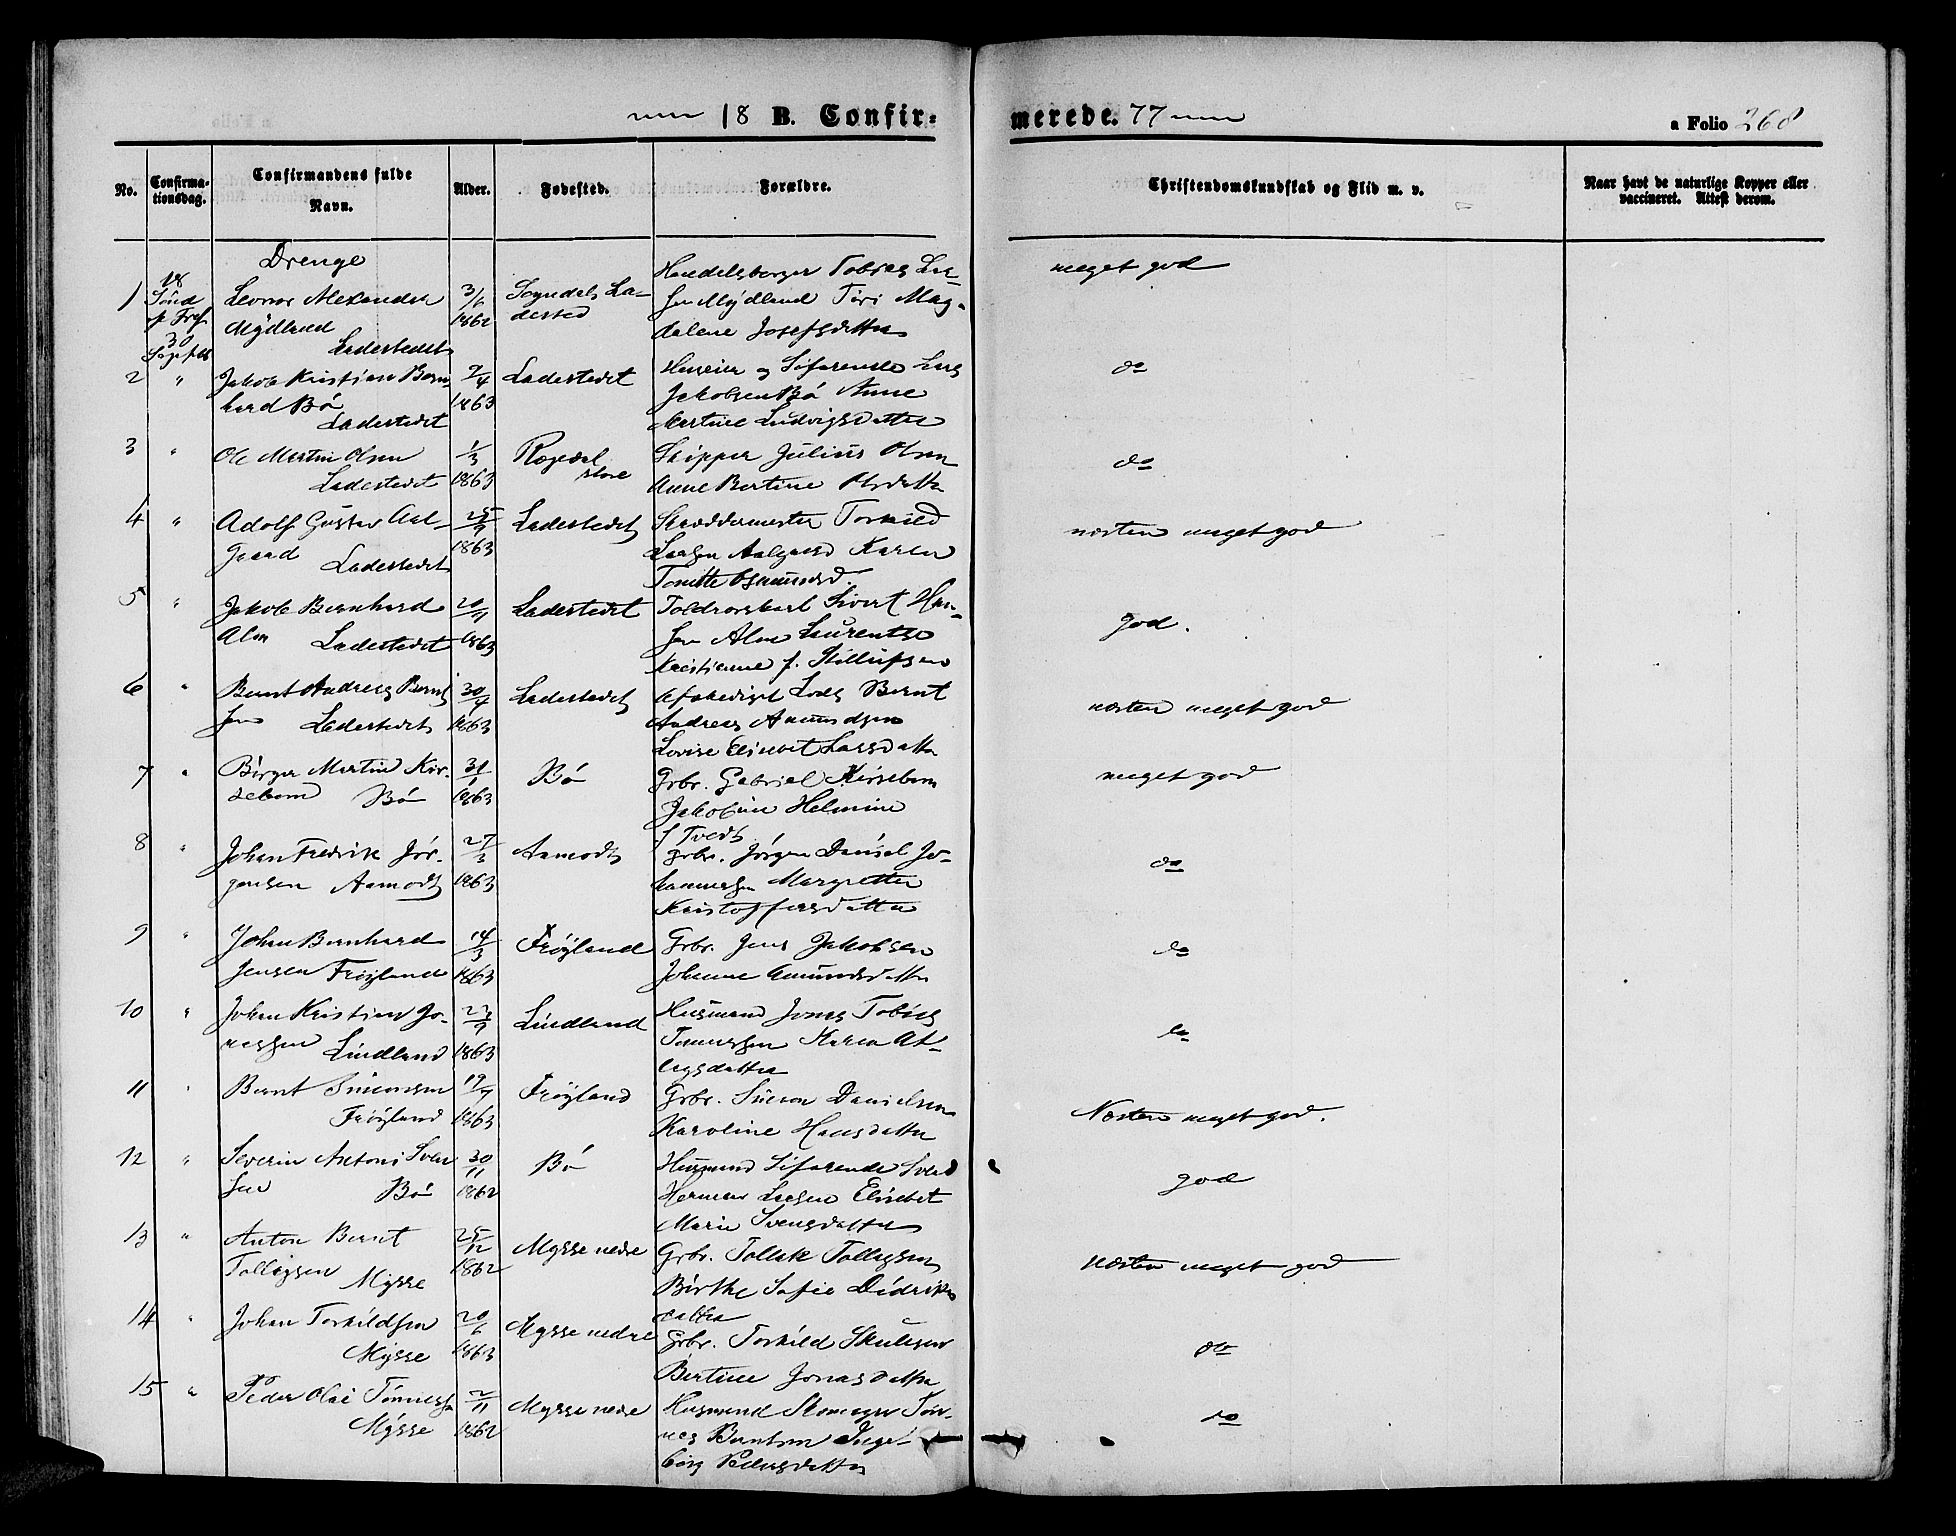 18 B. Confir=
merede. 77
a Folio 268
No.
Confirma-
tionsdag.
Confirmandens fulde
Navn.
Alder.
Fødested.
Forældre.
Christendomskundskab og Flid m. v.
Naar havt de naturlige Kopper eller
vaccineret. Attest derom.
Drenge
1
18
Sønd
p Tref
30
3/6
1862
Mydland
Ladestedet
Sogndals La-
dested
Handelsborger Tobias
Mydland Mag-
dalene Josefsdatter
meget god
2 " Jakob Kristian Bern-
hard Bö
Ladestedet
7/4
1863
Ladestedet
Huseier og Söfarende Lars
Jakobsen Bö Anne
Martine Ludvigsdatter
do
3 " Ole Martin Olsen
Ladestedet
1/3
1863
Rægedal
store
Skipper Julius Olsen
Anne Bertine Olsdatter
do
4 " Adolf Gustav Aal-
gaard Ladestedet
1863
Ladestedet
Skræddermester Torkild
Larsen Aalgaard Karen
næsten meget god
5 " Jakob Bernhard
Alm Ladestedet
1863
Ladestedet
Toldrorskarl Sivert Han-
sen Alm Laurentse
Kristianne f.
god.
6 " Bernt Andreas Bernt
sen Ladestedet
30/4
1863
Ladestedet
Lods Bernt
Andreas Amundsen
Lovise Elisebet Larsdatter
næsten meget god
7 " Börge Martin Kir-
sebom Bö
31/1
1863
Bö
Grbr. Gabriel Kirsebom
Jakobine Helmine
f Tvedt
meget god
8 " Johan Fredrik Jör-
gensen Aamodt
27/3
1863
Aamodt
Grbr. Jörgen Daniel Jo-
hannessen Margrethe
Kristoffersdatter
do
9 " Johan Bernhard
Jensen Fröyland
14/3
1863
Fröyland
Grbr. Jens Jakobsen
Johanne Amundsdatter
do
10 " Johan Kristian Jo-
nassen Lindland
1863
Lindland
Husmand Jonas Tobias
Tönnessen Karen At-
lagsdatter
do
11 " Bernt Simonsen
Fröyland
1863
Fröyland
Grbr. Simon Danielsen
Karoline Hansdatter
Næsten meget god.
12 " Severin Antoni Sven
sen Bö
30/11
1862
Bö
Husmand Söfarende Svend
Herman Larsen Elisebet
Marie Svensdatter
god
13 " Anton Bernt
Tollagsen Mysse
25/12
1862
Mysse nedre
Grbr. Tollak Tollagsen
Birthe Sofie Didriks
datter
næsten meget god
14 " Johan Torkildsen
Mysse
20/6
1863
Mysse nedre
Grbr. Torkild Skulesen
Bertine Jonasdatter
do
15 " Peder Olai Tönnessen
Mysse
2/11
1862
Mysse nedre
Husmand Skomager Tön-
nes Berntsen Inge-
borg Pedersdatter
do